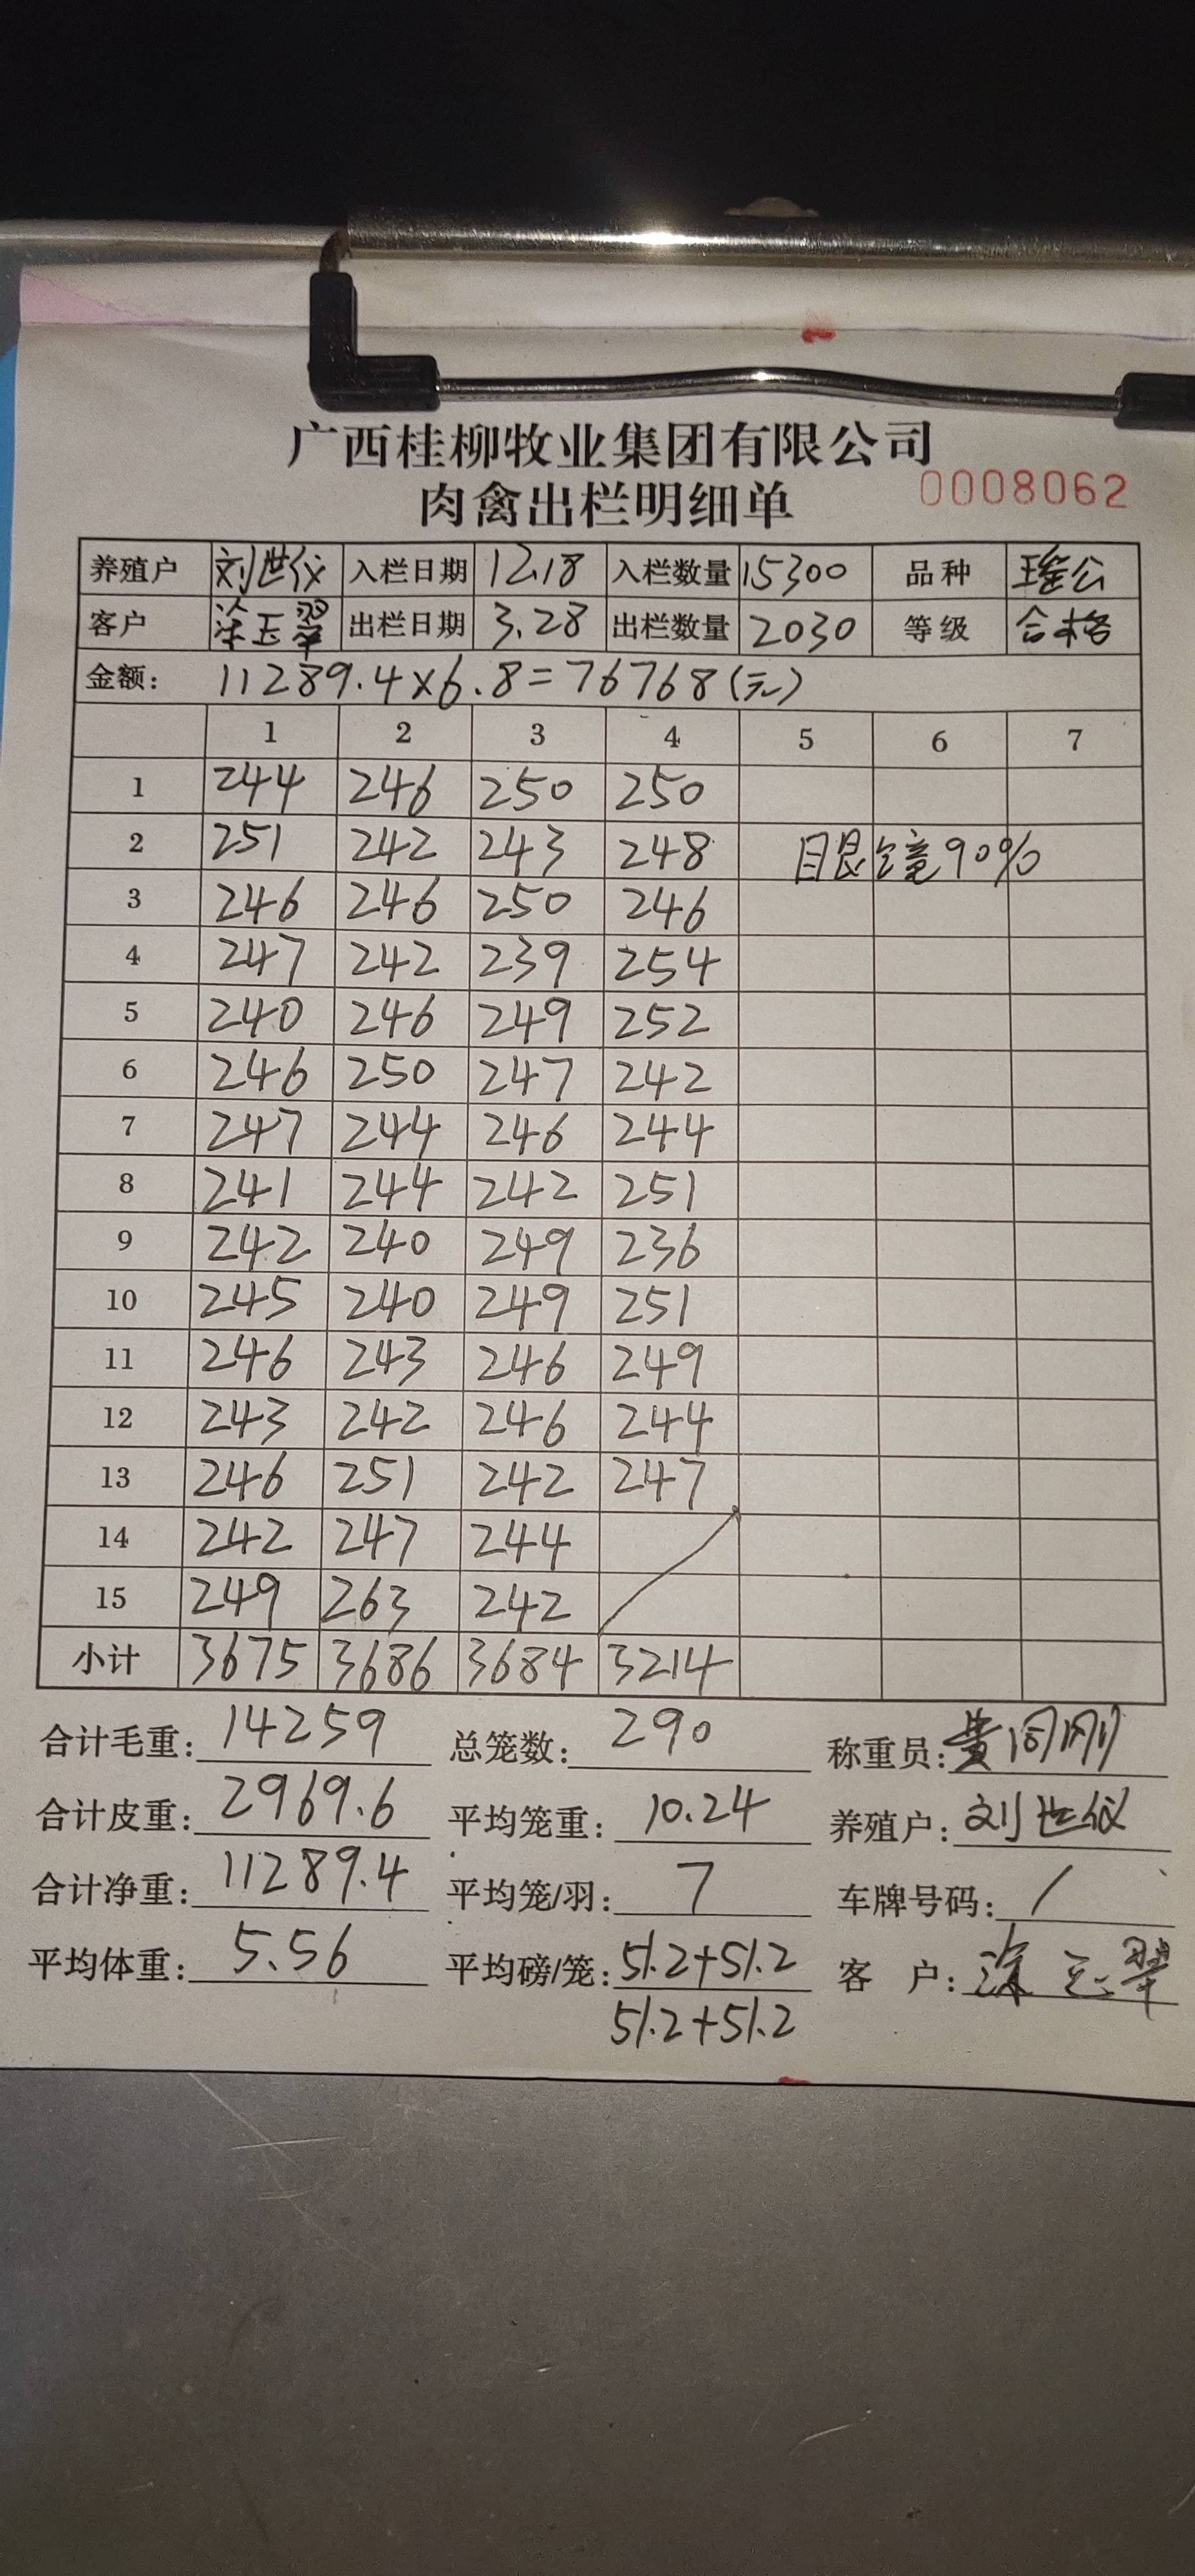 广西桂柳牧业集团有限公司
肉禽出栏明细单 0008062
养殖户 刘世仪 入栏日期 12.18 入栏数量 15300 品种 瑶公
客户 涂玉翠 出栏日期 3.28 出栏数量 2030 等级 合格
金额: 11289.4×6.8=76768(元)
1 2 3 4 5 6 7
1 244 246 250 250
2 251 242 243 248 眼镜90%
3 246 246 250 246
4 247 242 239 254
5 240 246 249 252
6 246 250 247 242
7 247 244 246 244
8 241 244 242 251
9 242 240 249 236
10 245 240 249 251
11 246 243 246 249
12 243 242 246 244
13 246 251 242 247
14 242 247 244
15 249 263 242
小计 3675 3686 3684 3214
合计毛重: 14259 总笼数: 290 称重员:
合计皮重: 2969.6 平均笼重: 10.24 养殖户: 刘世仪
合计净重: 11289.4 平均笼/羽: 7 车牌号码: /
平均体重: 5.56 平均磅/笼: 51.2+51.2 客 户: 涂玉翠
51.2+51.2